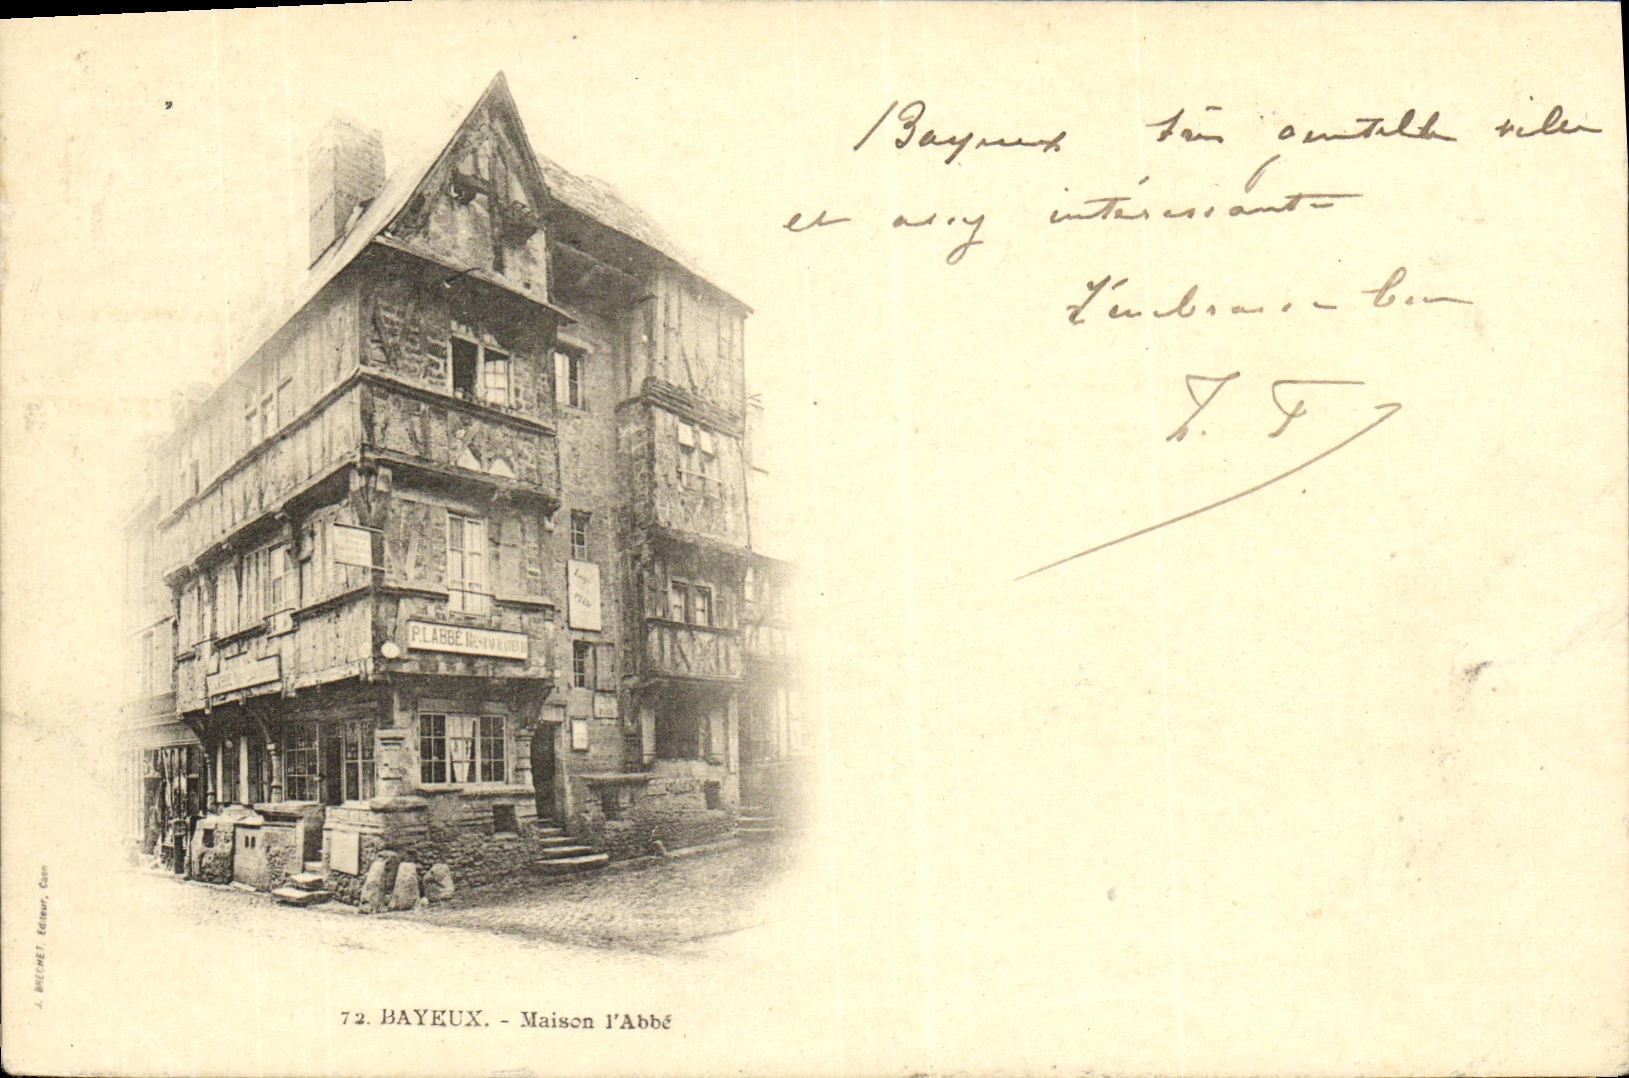 Bayeux très gentille ville
et assez intéressante
T'embrasse bien
T. F
P. LABBÉ RESTAURATEUR
72. BAYEUX. - Maison l'Abbé
J. BRECHET, Editeur, Caen